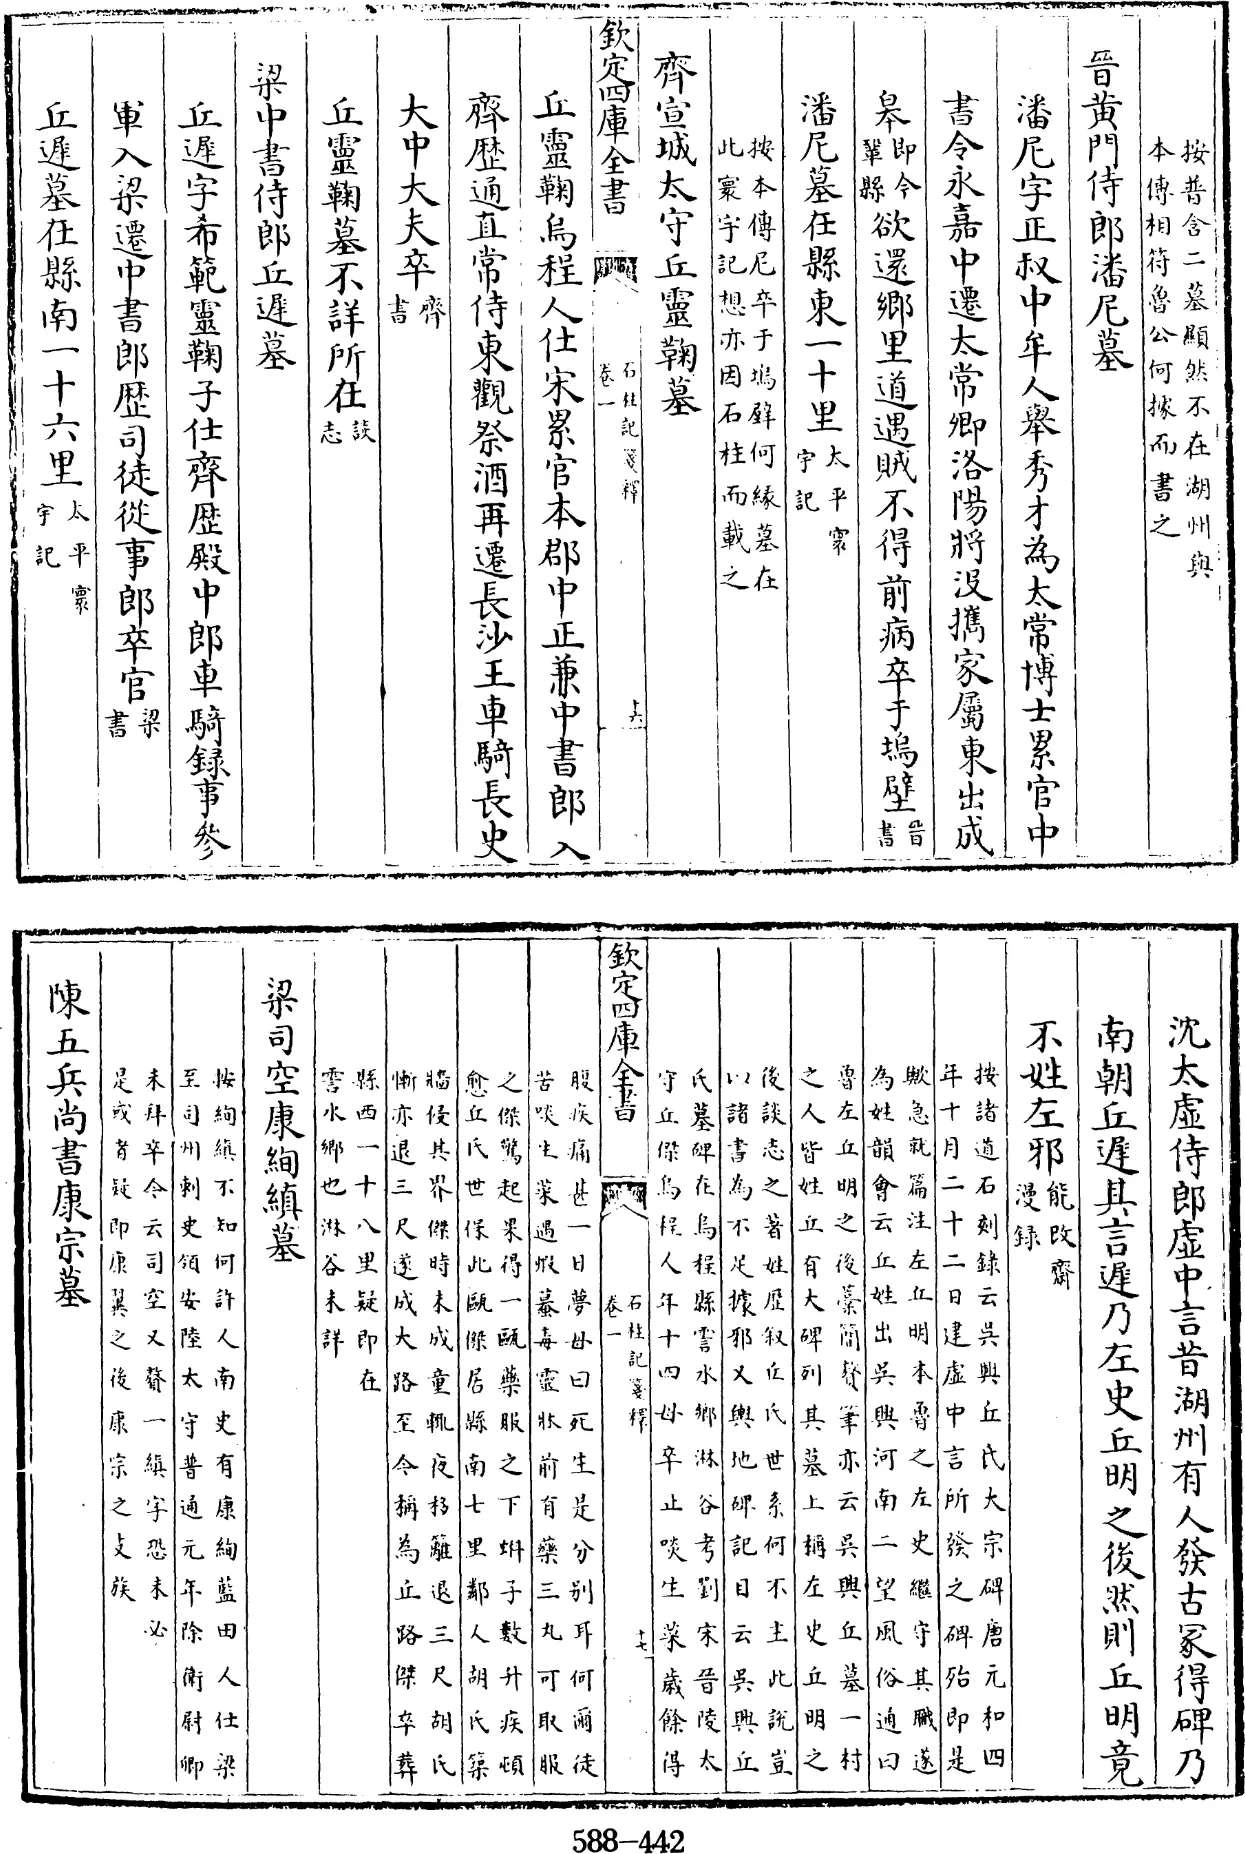 按普含二墓顯然不在湖州與
本傳相符魯公何據而書之
晉黃門侍郎潘尼墓
潘尼字正叔中牟人舉秀才為太常博士累官中
書令永嘉中遷太常卿洛陽將沒攜家屬東出成
皋即今鞏縣欲還鄉里道遇賊不得前病卒于塢壁晉書
潘尼墓在縣東一十里太平寰宇記
按本傳尼卒于塢壁何緣墓在
此寰宇記想亦因石柱而載之
齊宣城太守丘靈鞠墓
欽定四庫全書
石柱記箋釋
卷一
十六
丘靈鞠烏程人仕宋累官本郡中正兼中書郎入
齊歷通直常侍東觀祭酒再遷長沙王車騎長史
大中大夫卒齊書
丘靈鞠墓不詳所在談志
梁中書侍郎丘遲墓
丘遲字希範靈鞠子仕齊歷殿中郎車騎錄事參
軍入梁遷中書郎歷司徒從事郎卒官梁書
丘遲墓在縣南一十六里太平寰宇記
沈太虛侍郎虛中言昔湖州有人發古冢得碑乃
南朝丘遲其言遲乃左史丘明之後然則丘明竟
不姓左邪能改齋漫錄
按諸道石刻錄云吳興丘氏大宗碑唐元和四
年十月二十二日建虛中言所發之碑殆即是
歟急就篇注左丘明本魯之左史繼守其職遂
為姓韻會云丘姓出吳興河南二望風俗通曰
魯左丘明之後藁簡贅筆亦云吳興丘墓一村
之人皆姓丘有大碑列其墓上稱左史丘明之
後談志之著姓歷叙丘氏世系何不主此說豈
以諸書為不足據邪又輿地碑記目云吳興丘
氏墓碑在烏程縣霅水鄉淋谷考劉宋晉陵太
守丘傑烏程人年十四母卒止啖生菜歲餘得
欽定四庫全書
石柱記箋釋
卷一
十七
腹疾痛甚一日夢母曰死生是分別耳何爾徒
苦啖生菜遇蝦蟇毒靈牀前有藥三丸可取服
之傑驚起果得一甌藥服之下蝌子數升疾頓
愈丘氏世保此甌傑居縣南七里鄰人胡氏築
牆侵其界傑時未成童輒夜移籬退三尺胡氏
慚亦退三尺遂成大路至今稱為丘路傑卒葬
縣西一十八里疑即在
霅水鄉也淋谷未詳
梁司空康絢縝墓
按絢縝不知何許人南史有康絢藍田人仕梁
至司州刺史領安陸太守普通元年除衛尉卿
未拜卒今云司空又贅一縝字恐未必
是或者疑即康翼之後康宗之支族
陳五兵尚書康宗墓
588-442